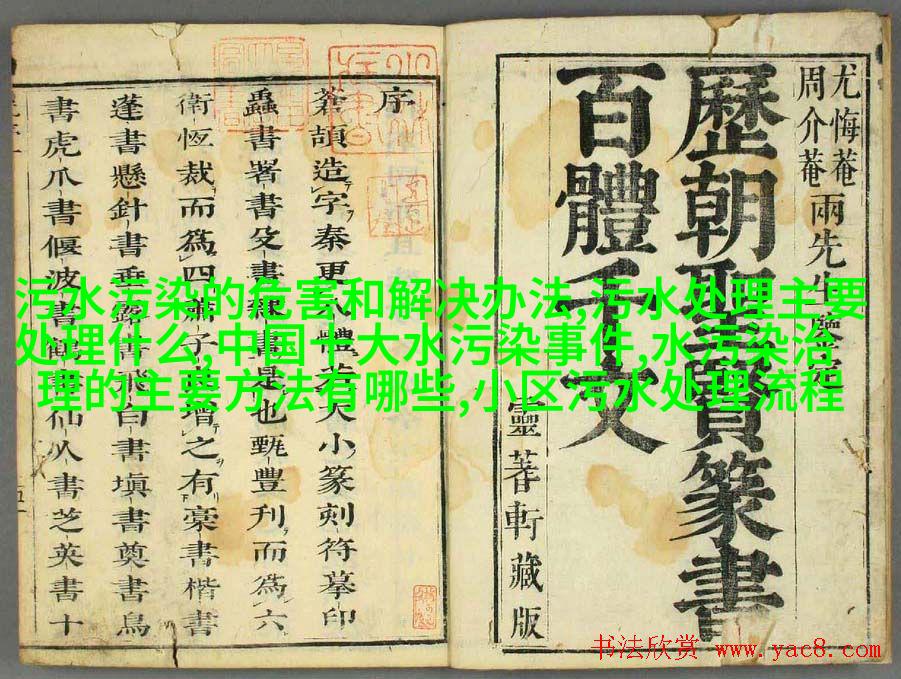 污水污染的危害和解决办法,污水处理主要
处理什么,中国十大水污染事件,水污染治
理的主要方法有哪些,小区污水处理流程
尤悔菴
周介菴
兩先生鑒
歷朝聖賢篆書
百體千文
靈蓍軒藏版
序
蒼頡造字秦更八體若大小篆刻符摹印
蟲書署書殳書隸書是也甄豐刋而爲六
衛恆裁而爲四蕭子增之有書楷書
蓬書懸針書垂露書飛白書塡書奠書鳥
書虎爪書偃波書仙人書芝英書十
书法欣赏 www.yac8.com